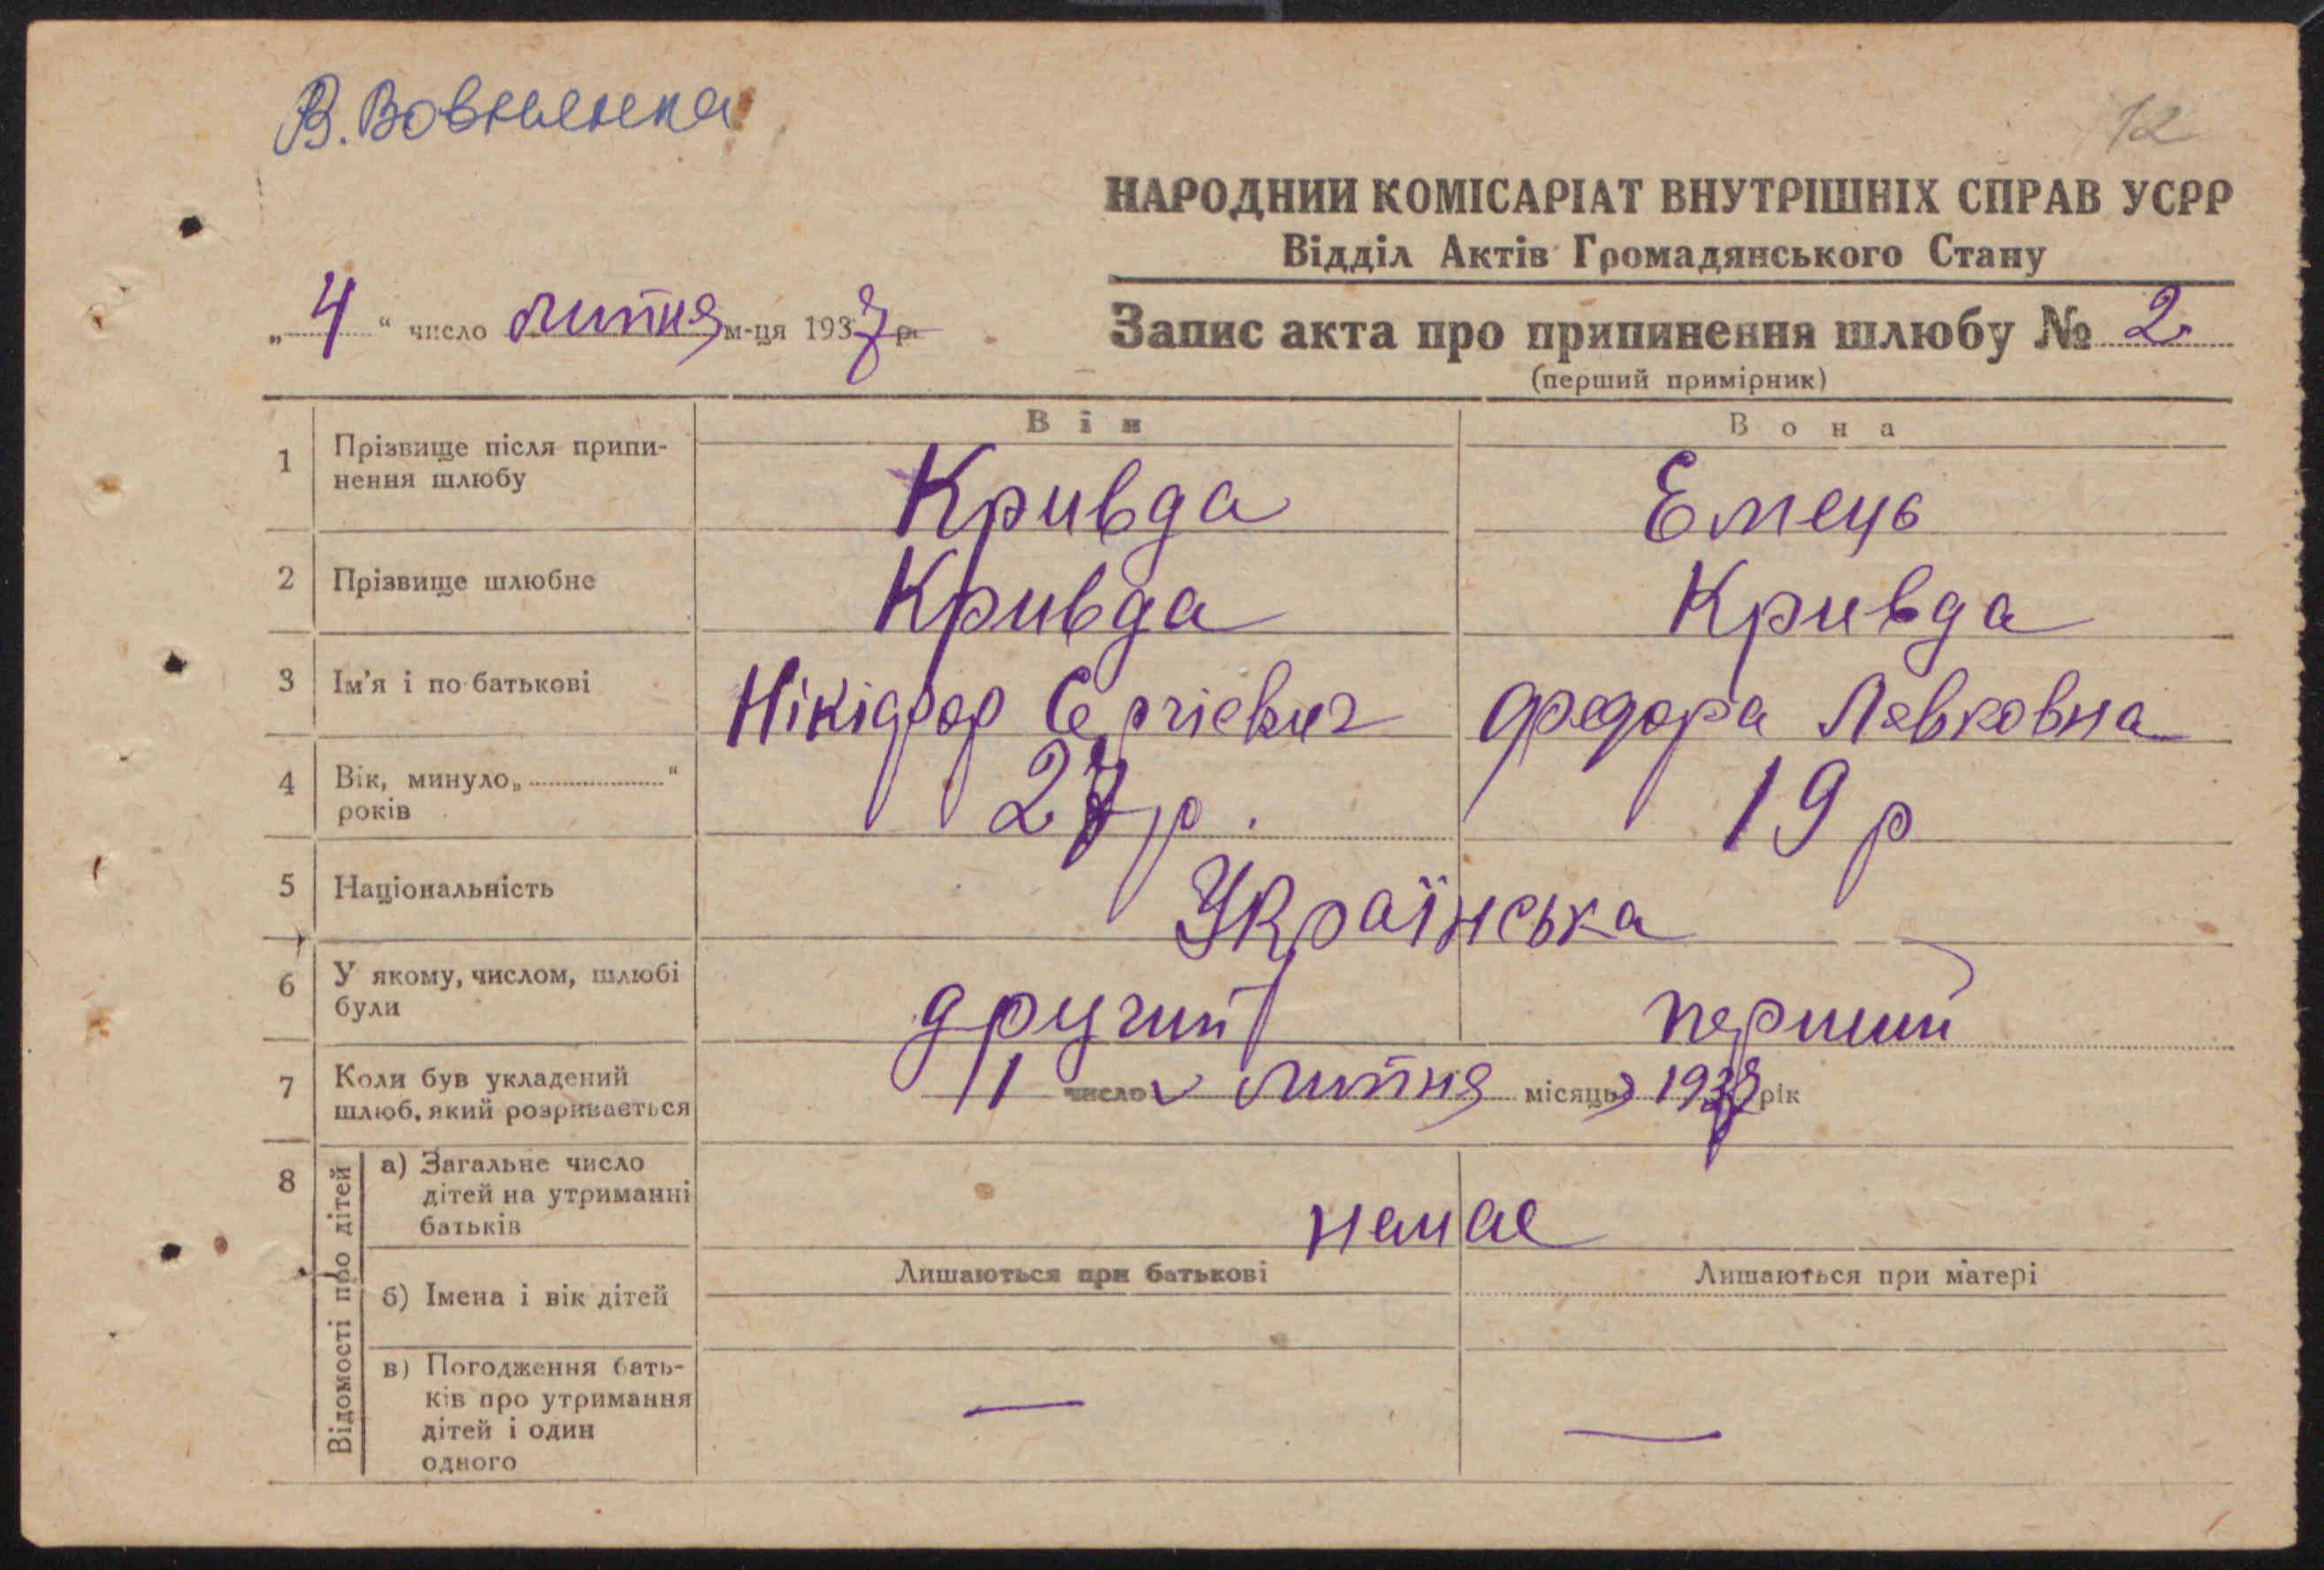 В. Вовнянка
12
НАРОДНИЙ КОМІСАРІАТ ВНУТРІШНІХ СПРАВ УСРР
Відділ Актів Громадянського Стану
„ 4 “ число липня м-ця 1937 р.
Запис акта про припинення шлюбу № 2
(перший примірник)
Він Вона
1 Прізвище після припи-
нення шлюбу Кривда Емець
2 Прізвище шлюбне Кривда Кривда
3 Ім’я і по-батькові Нікіфор Сергієвич Федора Левковна
4 Вік, минуло „ “
років 27 р. 19 р
5 Національність Українська
6 У якому, числом, шлюбі
були другий перший
7 Коли був укладений
шлюб, який розривається 11 число липня місяць 1937 рік
8 Відомості про дітей
а) Загальне число
дітей на утриманні
батьків немає
Лишаються при батькові Лишаються при матері
б) Імена і вік дітей
в) Погодження бать-
ків про утримання
дітей і один
одного — —